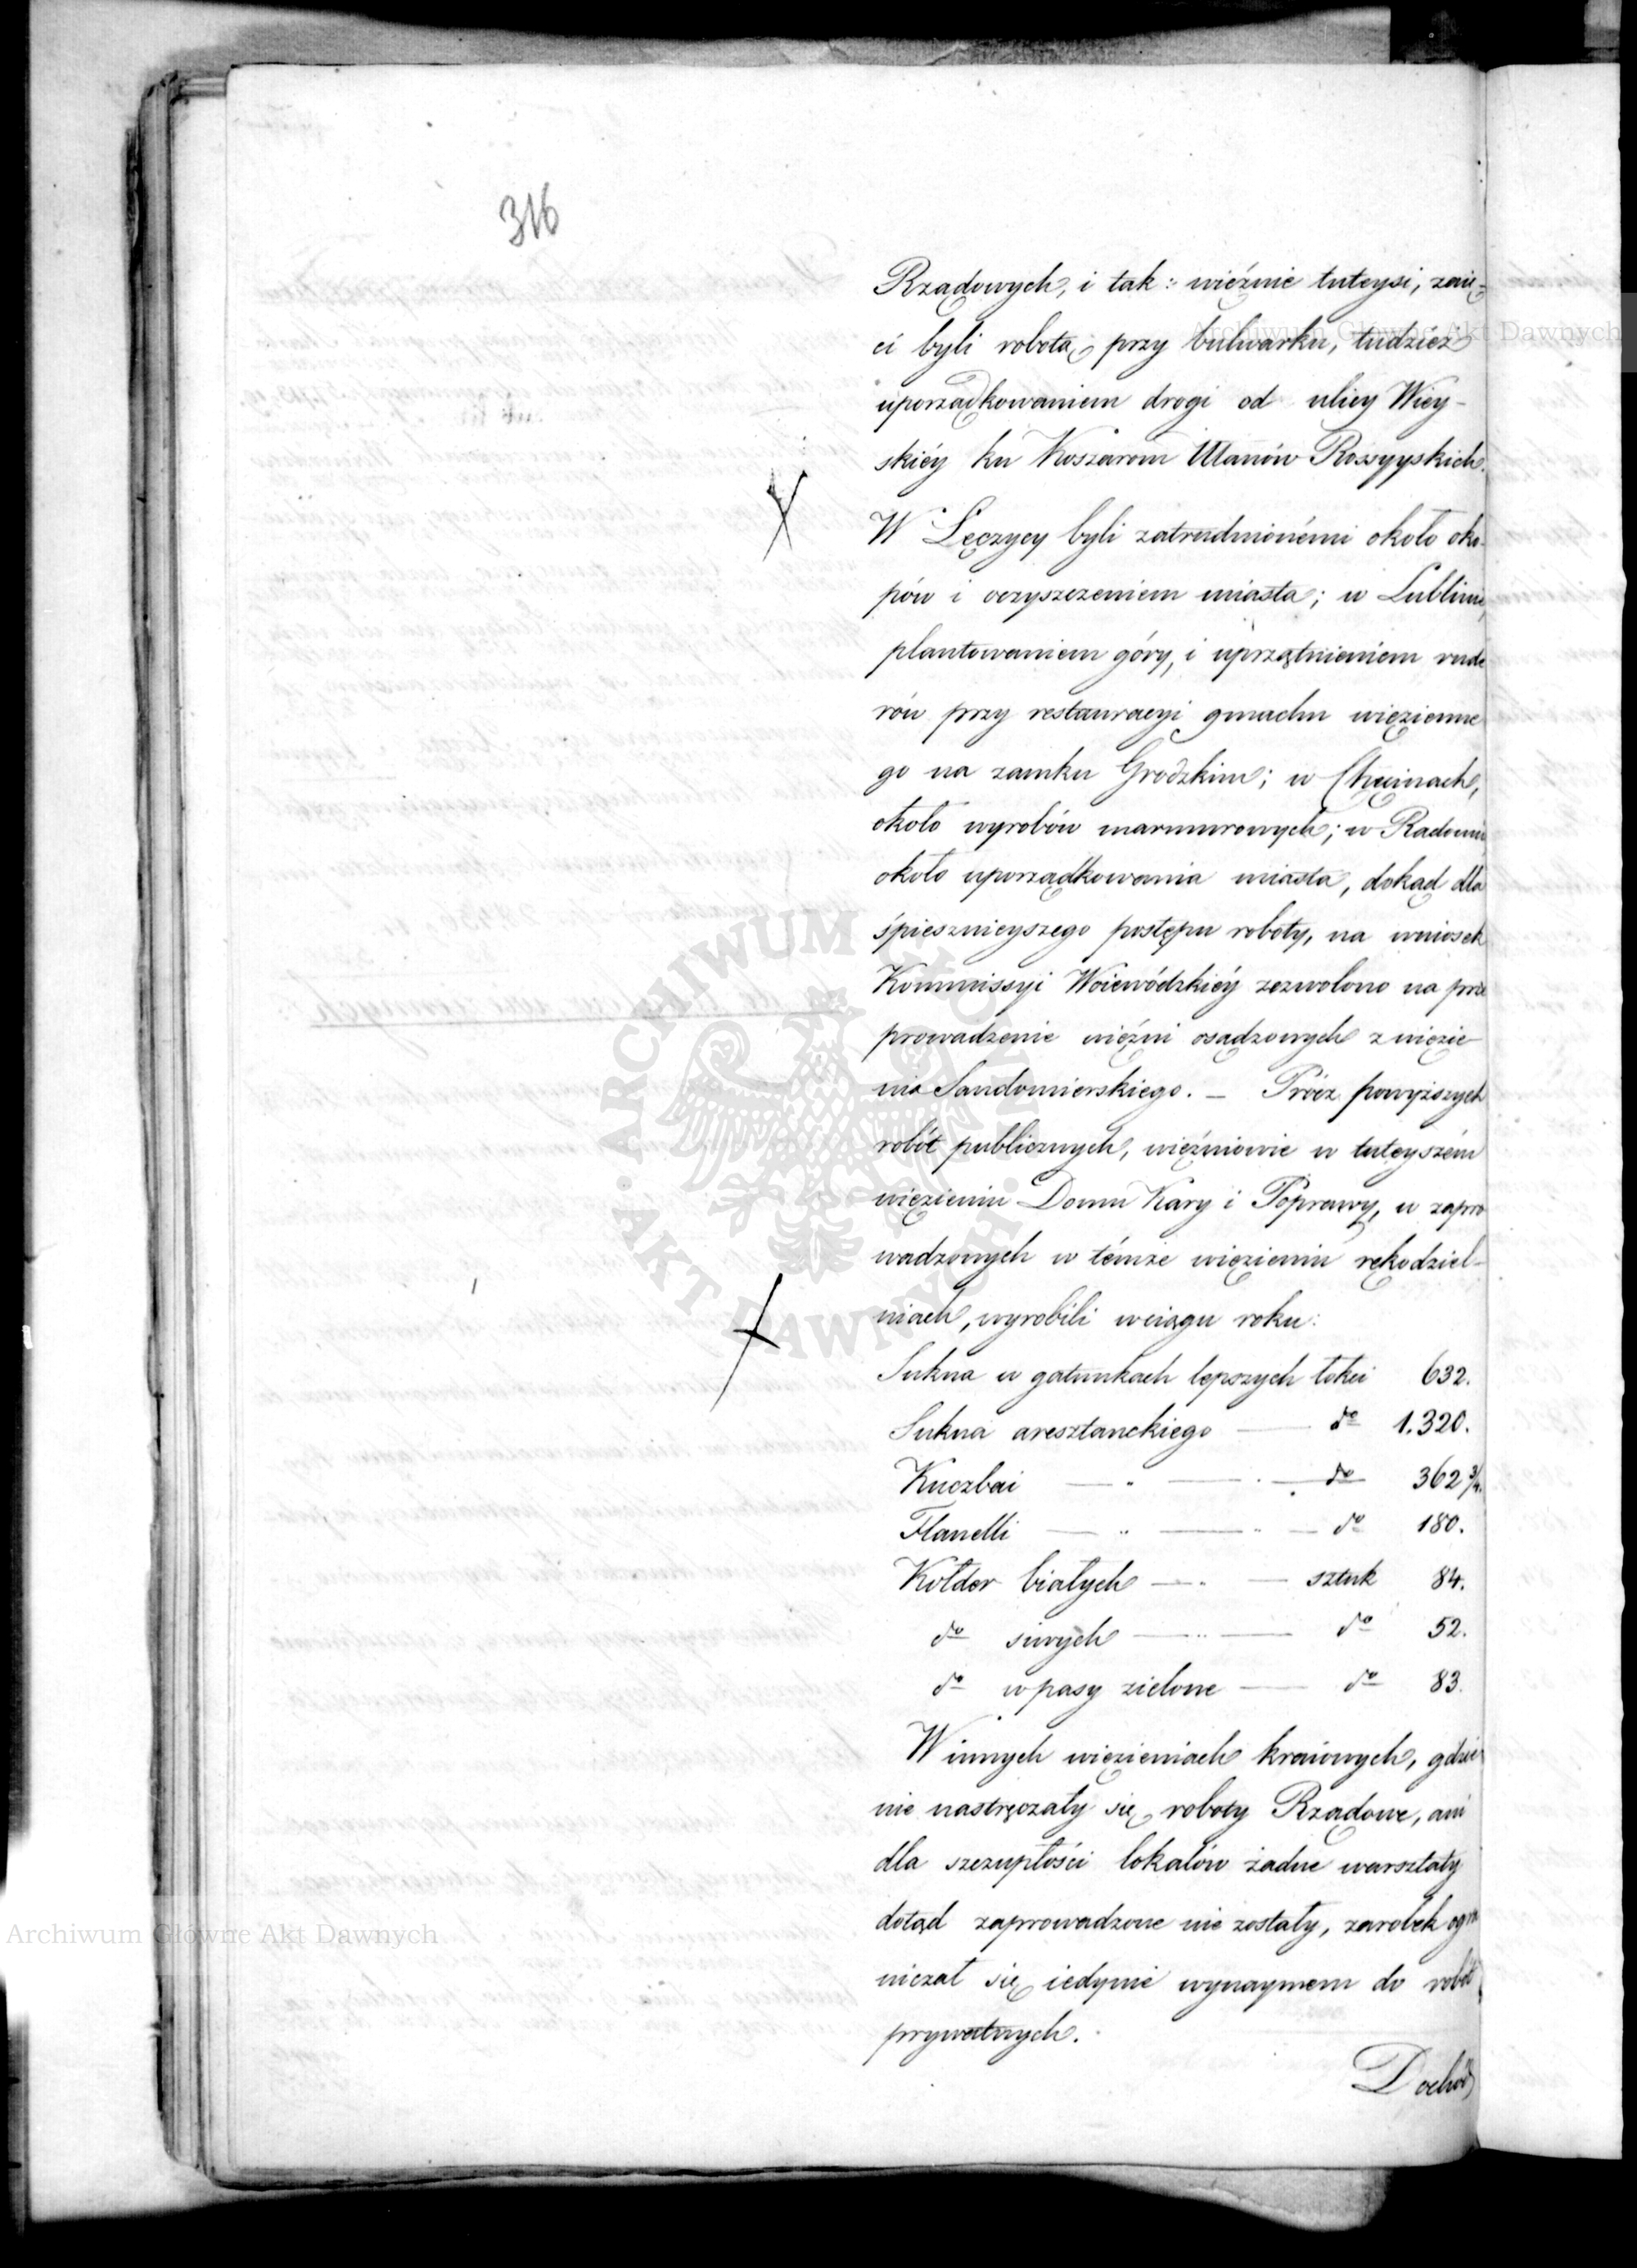 316
Rządowych, i tak: więźnie tuteysi, zaię-
ci byli robotą przy bulwarku, tudzież
uporządkowaniem drogi od ulicy Wiey-
skiéy ku Koszarom Ułanów Rossyyskich.
W Łęczycy byli zatrudnionémi około oko-
pów i oczyszczeniem miasta; w Lublinie,
plantowaniem góry, i uprzątnieniem rude
rów przy restauracyi gmachu więzienne
go na zamku Grodzkim; w Chęcinach,
około wyrobów marmurowych; w Radomiu
około uporządkowania miasta, dokąd dla
śpiesznieyszego postępu roboty, na wniosek
Kommissyi Woiewódzkiéy zezwolono na prze
prowadzenie więźni osądzonych z więzie-
nia Sandomierskiego. – Prócz powyższych
robót publicznych, więźniowie w tuteyszém
więzieniu Domu Kary i Poprawy, w zapro
wadzonych w témże więzieniu rękodziel-
niach, wyrobili wciągu roku:
Sukna w gatunkach lepszych łokci 632.
Sukna aresztanckiego — do 1.320.
Kuczbai — " — do 362 3/4.
Flanelli — " — " — do 180.
Kołder białych — " — sztuk 84.
do siwych — " — do 52.
do w pasy zielone — do 83.
W innych więzieniach kraiowych, gdzie
nie nastręczały się roboty Rządowe, ani
dla szczupłości lokalów żadne warsztaty
dotąd zaprowadzone nie zostały, zarobek ogra
niczał się iedynie wynaymem do robót
prywatnych.
Dochód
Archiwum Główne Akt Dawnych
Archiwum Główne Akt Dawnych
ARCHIWUM GŁÓWNE AKT DAWNYCH